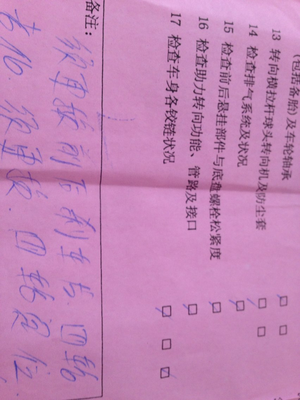 (包括备胎)及车轮轴承
13 转向横拉杆球头转向机及防尘套
14 检查排气系统及状况
15 检查前后悬挂部件与底盘螺栓松紧度
16 检查助力转向功能、管路及接口
17 检查车身各铰链状况
备注:
须更换前后刹车片 四轮
须更换 四轮定位